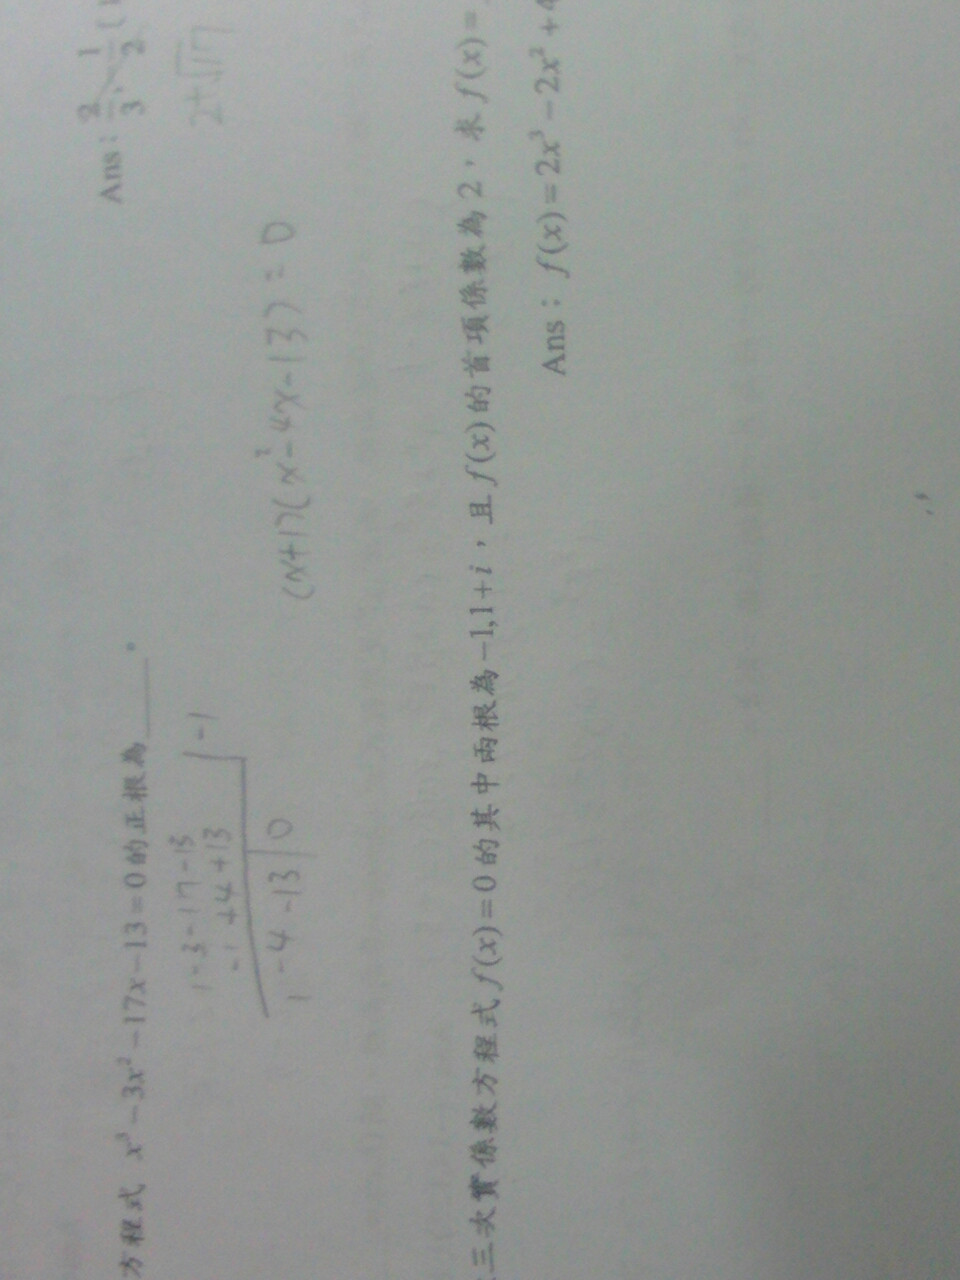 Ans：2/3、-1/2
方程式 x³－3x²－17x－13＝0 的正根為____。
2+√17
1-3-17-13 |-1
-1 +4 +13
1 -4 -13 | 0
(x+1)(x²-4x-13)=0
三次實係數方程式 f(x)＝0 的其中兩根為－1,1＋i，且 f(x) 的首項係數為 2，求 f(x)＝
Ans：f(x)＝2x³－2x²＋4